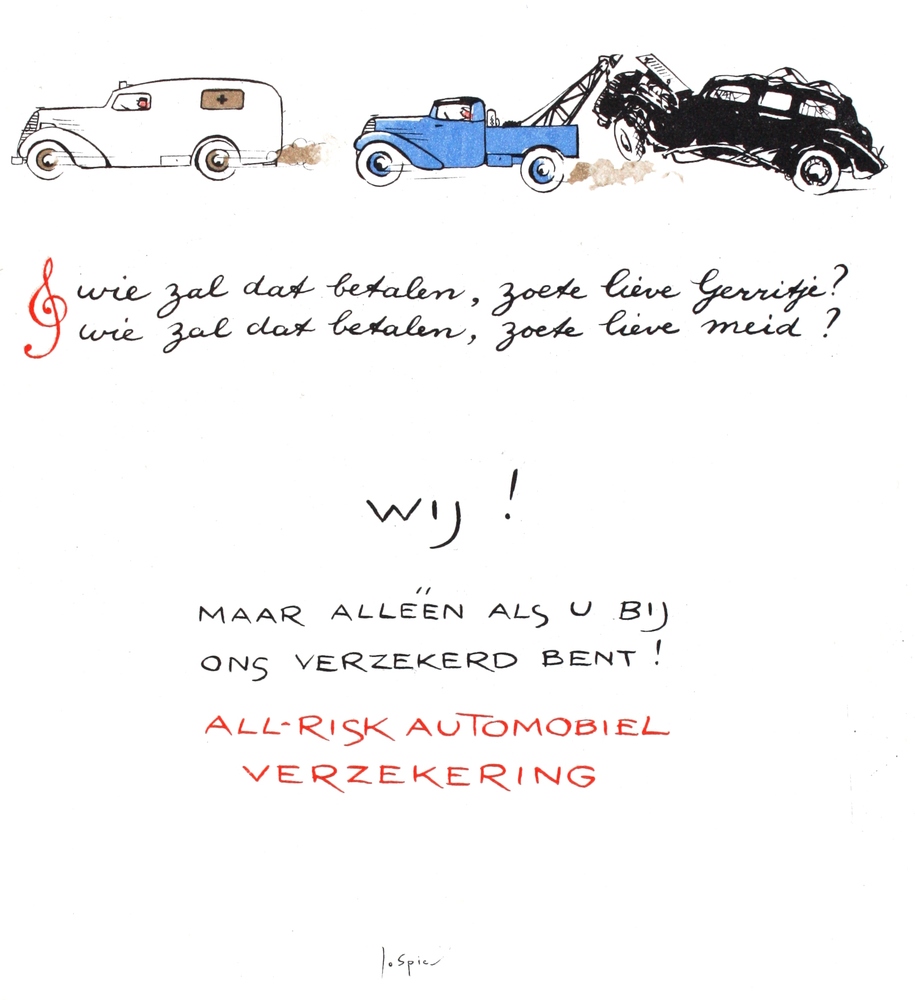 wie zal dat betalen, zoete lieve Gerritje?
wie zal dat betalen, zoete lieve meid?
WIJ!
MAAR ALLEËN ALS U BIJ
ONS VERZEKERD BENT!
ALL-RISK AUTOMOBIEL
VERZEKERING
Jo Spier